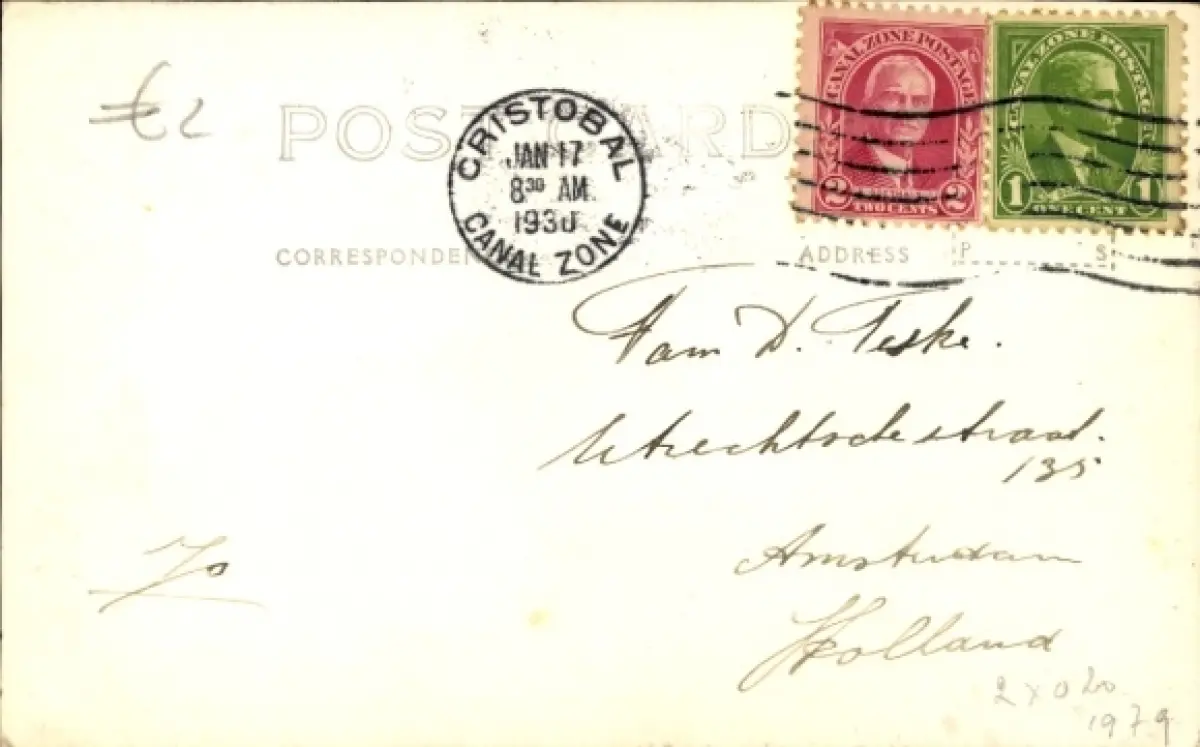 €2
POST CARD
CRISTOBAL
JAN 17
8 30 AM.
1930
CANAL ZONE
CANAL ZONE POSTAGE
2 2
TWO CENTS
CANAL ZONE POSTAGE
1 1
ONE CENT
CORRESPONDEN
ADDRESS
P S
Fam D. Teske.
Utrechtschestraat.
135
Amsterdam
Holland
Jo
2 x 0
1979